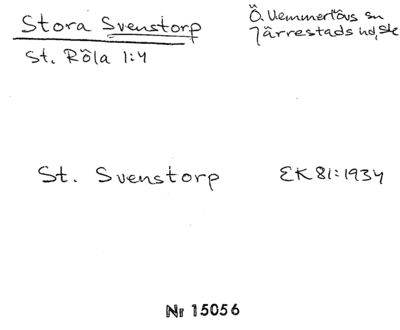 Stora Svenstorp
Ö. Vemmerlövs sn
Järrestads hd, Sk
St. Röla 1:4
St. Svenstorp
EK 81:1934
Nr 15056